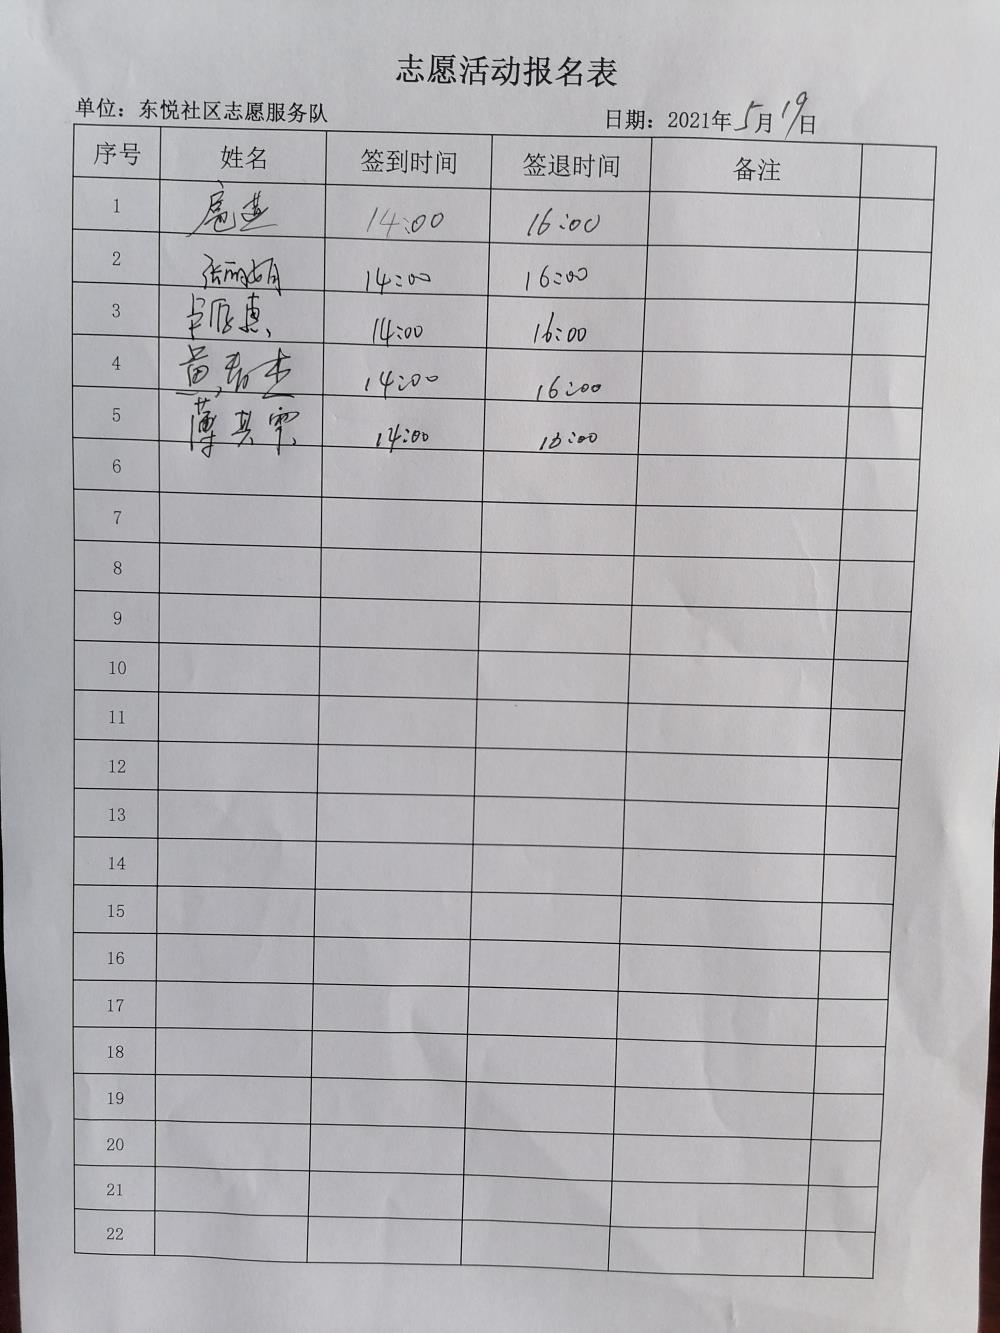 志愿活动报名表
单位：东悦社区志愿服务队 日期：2021年5月19日
序号 姓名 签到时间 签退时间 备注
1 14:00 16:00
2 张丽娟 14:00 16:00
3 14:00 16:00
4 14:00 16:00
5 薄其雷 14:00 16:00
6
7
8
9
10
11
12
13
14
15
16
17
18
19
20
21
22